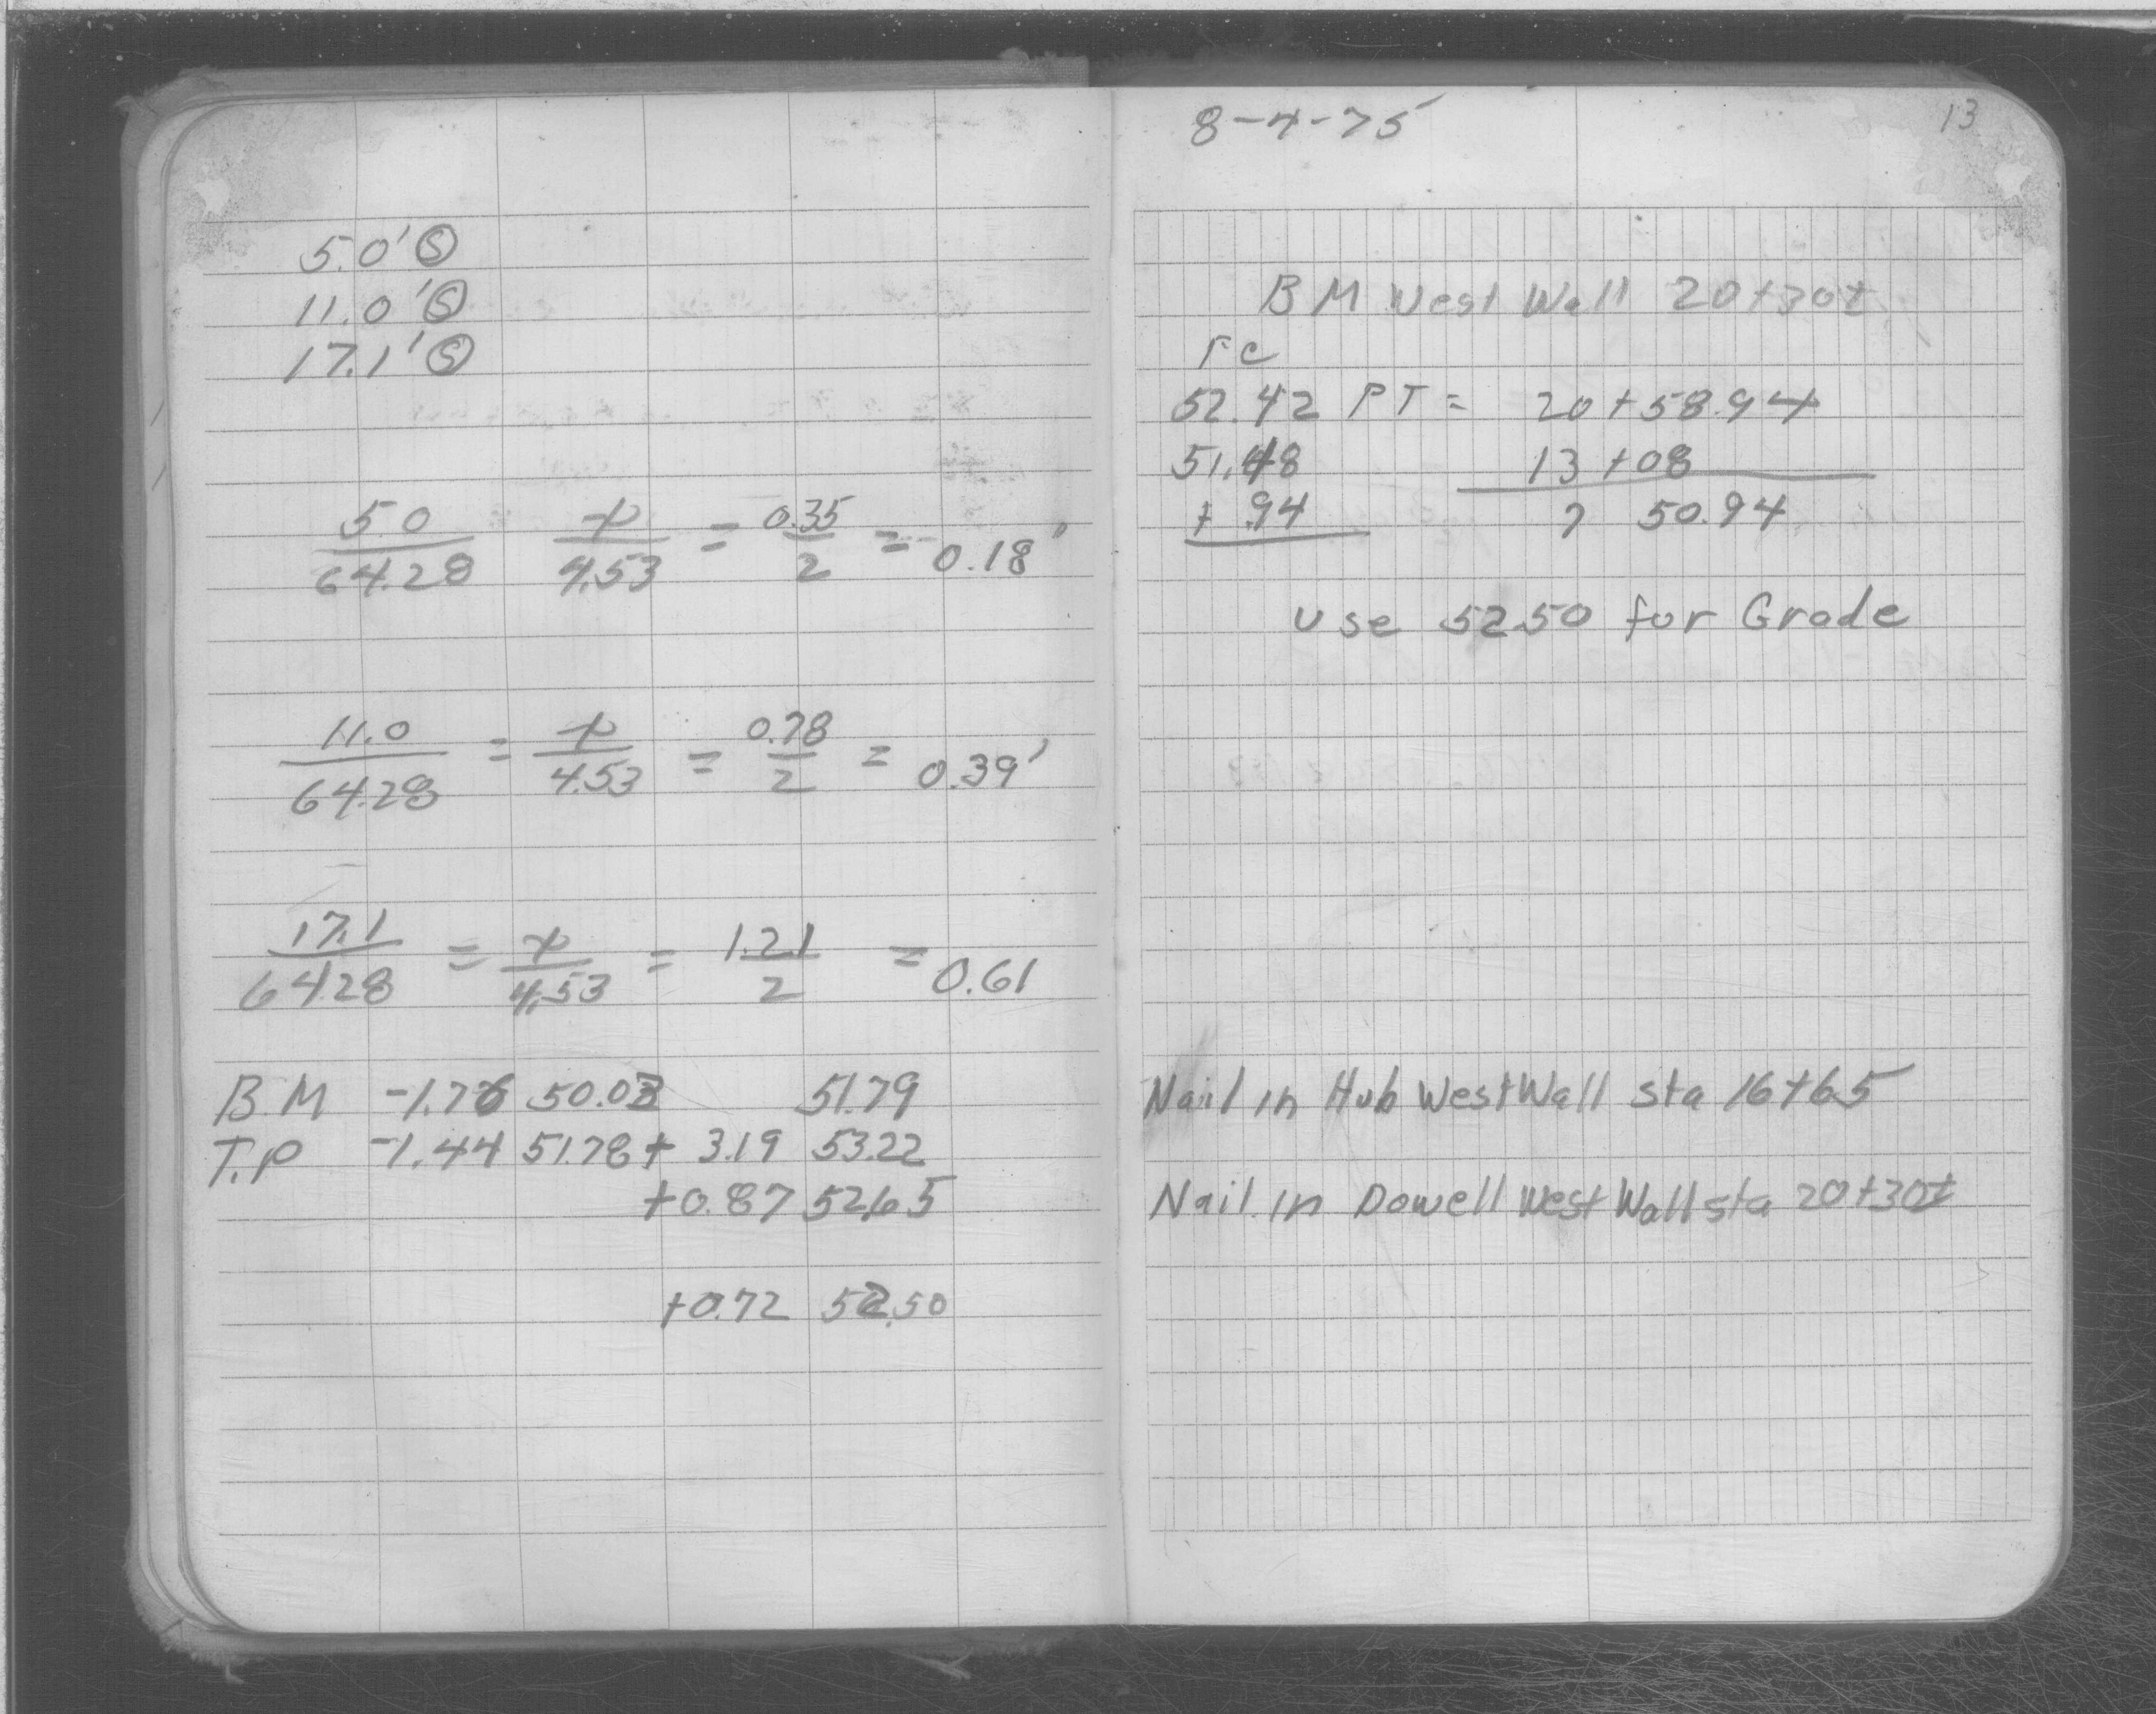 5.0' Ⓢ
11.0' Ⓢ
17.1' Ⓢ
5.0/64.28 x/4.53 = 0.35/2 = 0.18'
11.0/64.28 = x/4.53 = 0.78/2 = 0.39'
17.1/64.28 = x/4.53 = 1.21/2 = 0.61
B.M -1.76 50.03 51.79
T.P -1.44 51.78 + 3.19 53.22
+0.87 52.65
+0.72 52.50
8-4-75
13
BM West Wall 20+30±
52.42 PT = 20+58.94
51.48 13+08
+ .94 7 50.94
Use 52.50 for Grade
Nail in Hub West Wall sta 16+65
Nail in Dowell West Wall sta 20+30±